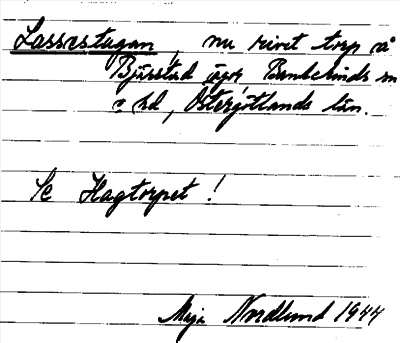 Lassestugan, nu rivet torp å
Bjärstad ägor, Bankekinds sn
o hd, Östergötlands län.
Se Hagtorpet!
Maja Nordlund 1944